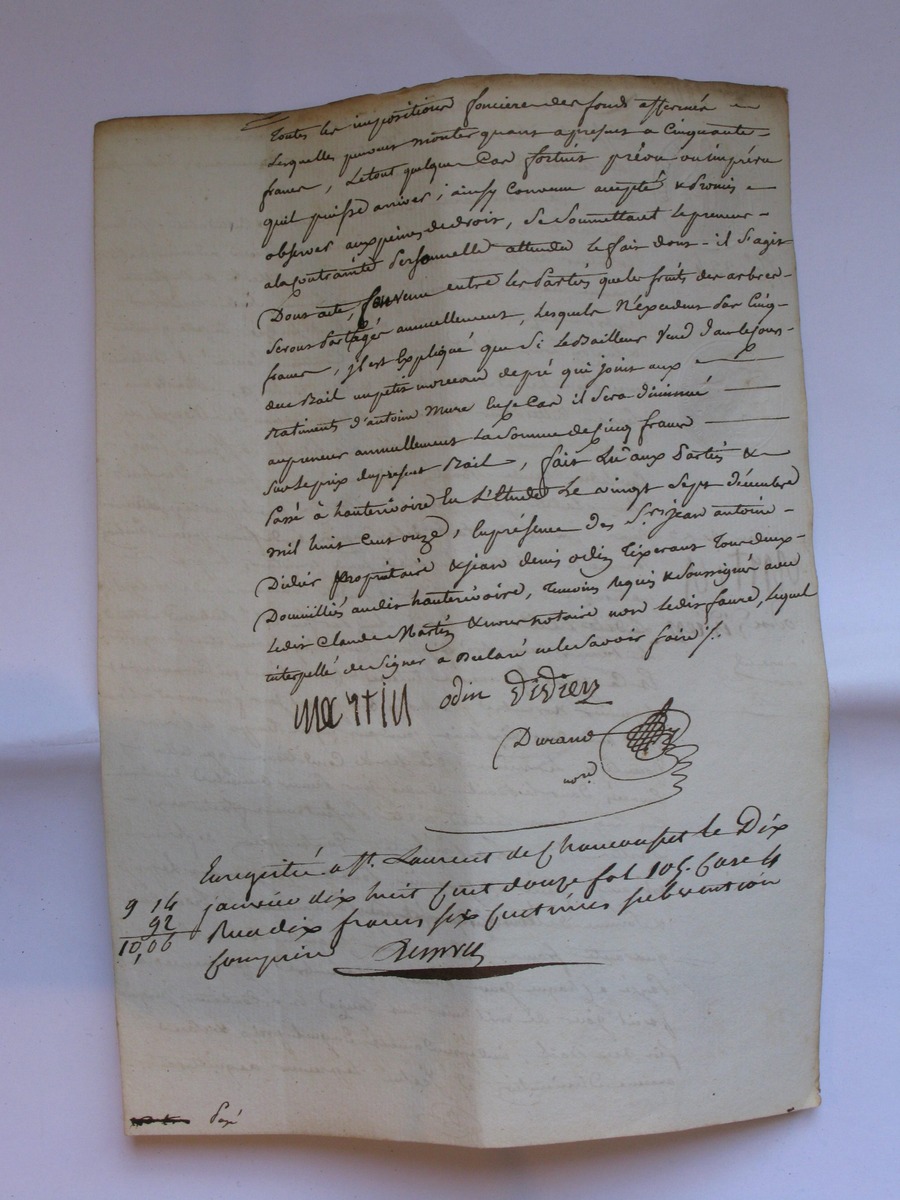 toutes les impositions foncieres des fonds affermés
lesquelles peuvent monter quant apresent a Cinquante
francs, letout quelque Cas fortuit prévu ou imprévu
quil puisse arriver; ainsy Convenu accepté & promis
observer aux peines de droit, se Soumettant le preneur
ala Contrainte personnelle attendu le fait dont il S'agit
Dont acte, Convenu entre les parties que les fruits des arbres
seront partagés annuellement, lesquels N'excedent pas Cinq
francs, il est Expliqué que Si le Bailleur Vend dans le cours
du Bail un petit morceau de pré qui joint aux
Batiments d'antoine mure En ce Cas il Sera diminué
au preneur annuellement la Somme de Cinq francs
Sur le prix du present Bail, fait Lu aux parties &
passé à hauterivoire En L'Etude Le vingt Sept décembre
mil huit Cent onze, En présence des S.rs jean antoine
Didier proprietaire & jean denis odin Tixerant Tous deux
Domiciliés audit hauterivoire, Temoins requis & Soussignés avec
ledit Claude Martin & nous notaire non ledit faure, lequel
interpellé de Signer a Declaré ne le Savoir faire /.
martin odin didier
Durand
no.re
Enregistré a St. Laurent de Chamousset le Dix
janvier dix huit Cent douze fol 105. Case 4
Reçu dix francs Six Centimes subvention
Comprise
9 14
92
10,06
payé